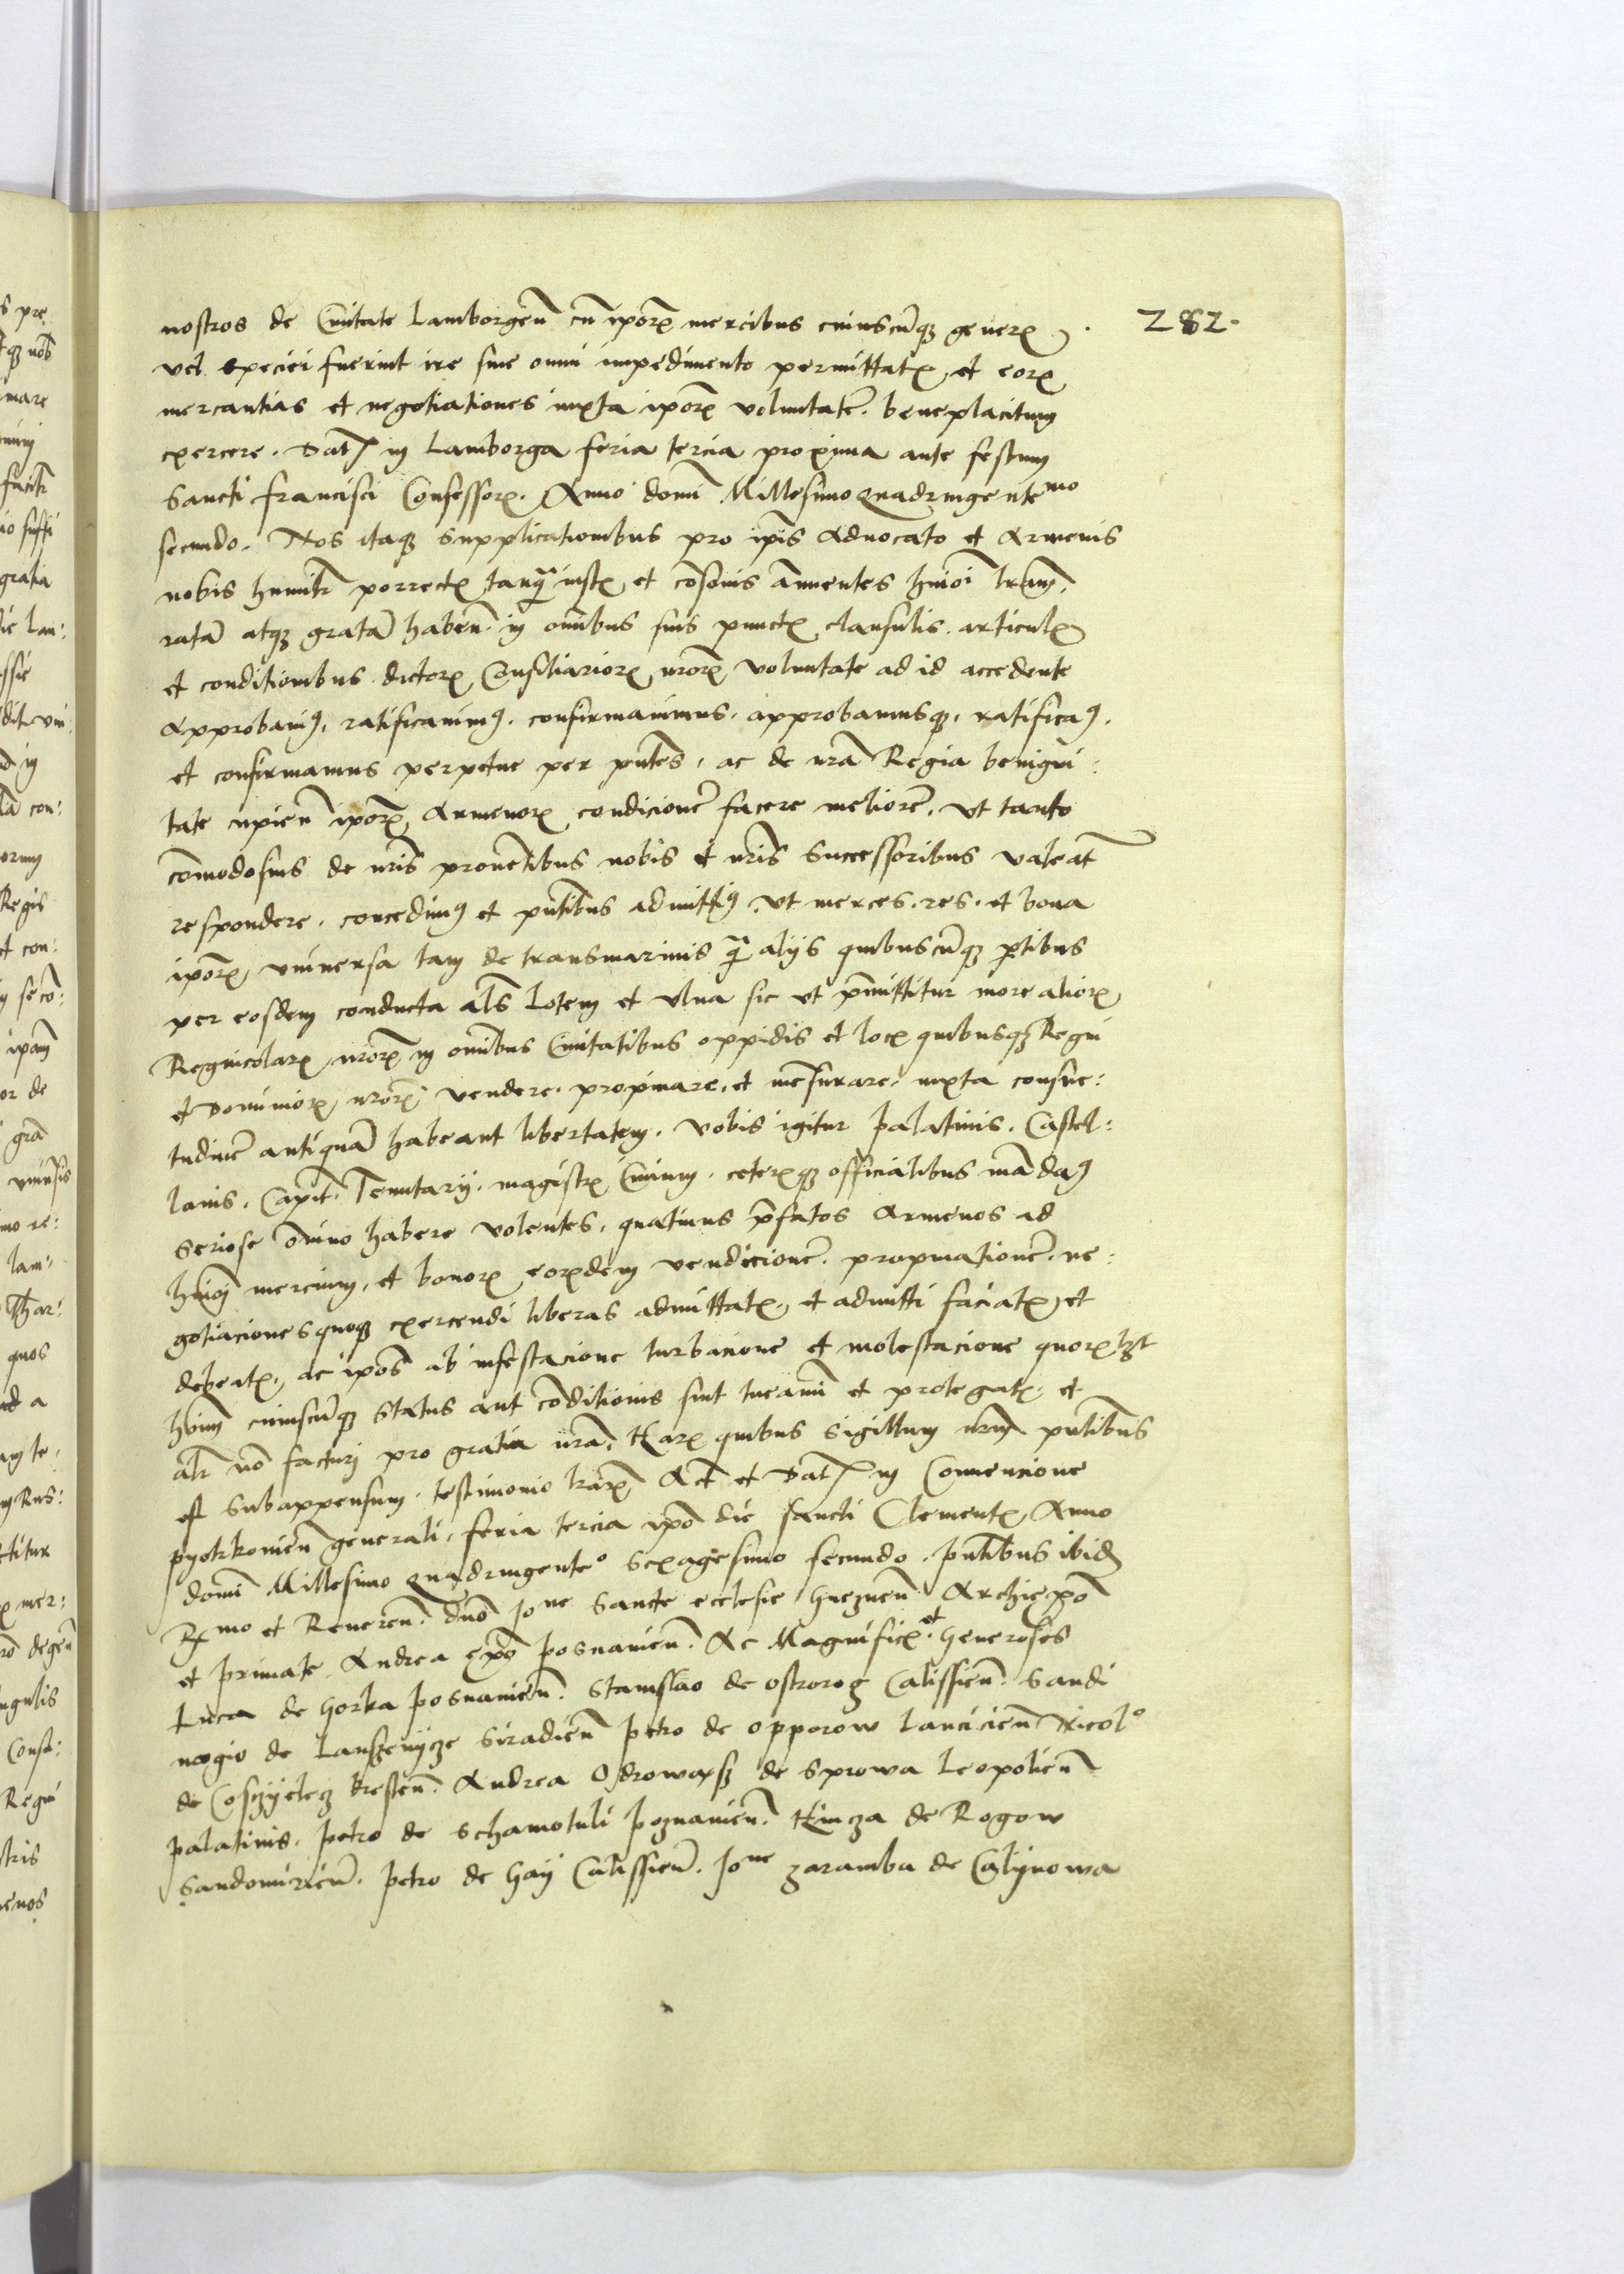 282.
nostros de Civitate Lamborgeñ cũ ipõrꝫ mercibus cuiuscũqꝫ generꝫ
vel speciei fuerint ire sine omni impedimento permittatꝫ et eorꝫ
mercantias et negotiationes iuxta ipõrꝫ voluntatẽ. beneplacitum
exercere. Datꝫ in Lamborga feria tercia proxima ante festum
Sancti francisci Confessorꝫ. Anno domĩ Millesimo quadringentemo
secundo. Nos itaqꝫ supplicationibus pro ipĩs Advocato et Armenis
nobis humilr̃ porrectꝫ tanqꝫ iustꝫ et cõsonis ãnuentes hmõi lr̃am,
ratã atqꝫ gratã habeñ. in om̃ibus suis punctꝫ clausulis. articulꝫ
et conditionibus. dictorꝫ Consiliariorꝫ nr̃orꝫ voluntate ad id accedente
Approbavimꝰ, ratificavimꝰ. confirmavimus. approbamusqꝫ, ratificamꝰ.
et confirmamus perpetue per pñtes, ac de nr̃a Regia benigni:
tate cupieñ ipõrꝫ Armenorꝫ condicionẽ facere meliorẽ. Ut tanto
cõmodosius de nr̃is proventibus nobis et nr̃is Successoribus valeãt
respondere. concedimꝰ et pñtibus admittimꝰ. Ut merces. res. et bona
ipõrꝫ universa tam de transmarinis qꝫ alijs quibuscũqꝫ ptibus
per eosdem conducta als̃ Lotem et Ulna sic ut p̃mittitur more aliorꝫ
Regnicolarꝫ nr̃orꝫ in om̃ibus Civitatibus oppidis et locꝫ quibusqꝫ Regni
et Dominiorꝫ nr̃orꝫ vendere. propinare, et mẽsurare. iuxta consue:
tudinẽ antiquã habeant libertatem. Vobis igitur Palatinis. Castel:
lanis. Capit. Tenutarij. magistrꝫ Civium. ceterꝫqꝫ officialibus mãdamꝰ
Seriose õmino habere volentes, quatinus p̃fatos Armenos ad
hmõi mercium, et bonorꝫ eorꝫdem vendicionẽ. propinationẽ. ne:
gotiaciones quoqꝫ exercendi liberas admittatꝫ, et admitti faciatꝫ, et
debeatꝫ, ac ipõs ab infestacione turbacione et molestacione quorꝫlꝫt
hõim cuiuscũqꝫ Status aut cõditionis sint tueamĩ et protegatꝫ. et
alr̃ nõ facturi pro gratia nr̃a. Harꝫ quibus Sigillum nr̃m pñtibus
est Subappensum. testimonio lr̃arꝫ Act̃ et Datꝫ in Convencione
pyotrkovieñ generali. feria tercia ipõ die Sancti Clementꝫ Anno
domĩ Millesimo quadringenteo Sexagesimo secundo. pñtibus ibidꝫ
Rꝫmo et Revereñ. dño Jone Sancte ecclesie Gnezneñ. Archiepõ
et Primate. Andrea epõ Posnanieñ. Ac Magnificꝫ. et Generosis
Luca de Gorka Posnanieñ. Stanislao de Ostrorog Calissieñ. Sandi
vogio de Lanszenijcze Siradieñ Petro de Opporow Lancicieñ Nicolo
de Cosczyelecz Bresteñ. Andrea Odrowąsz de Sprowa Leopolieñ
Palatinis. Petro de Schamotuli Poznanieñ. Hincza de Rogow
Sandomirieñ. Petro de Gay Calissieñ. Jone Zaramba de Calijnowa